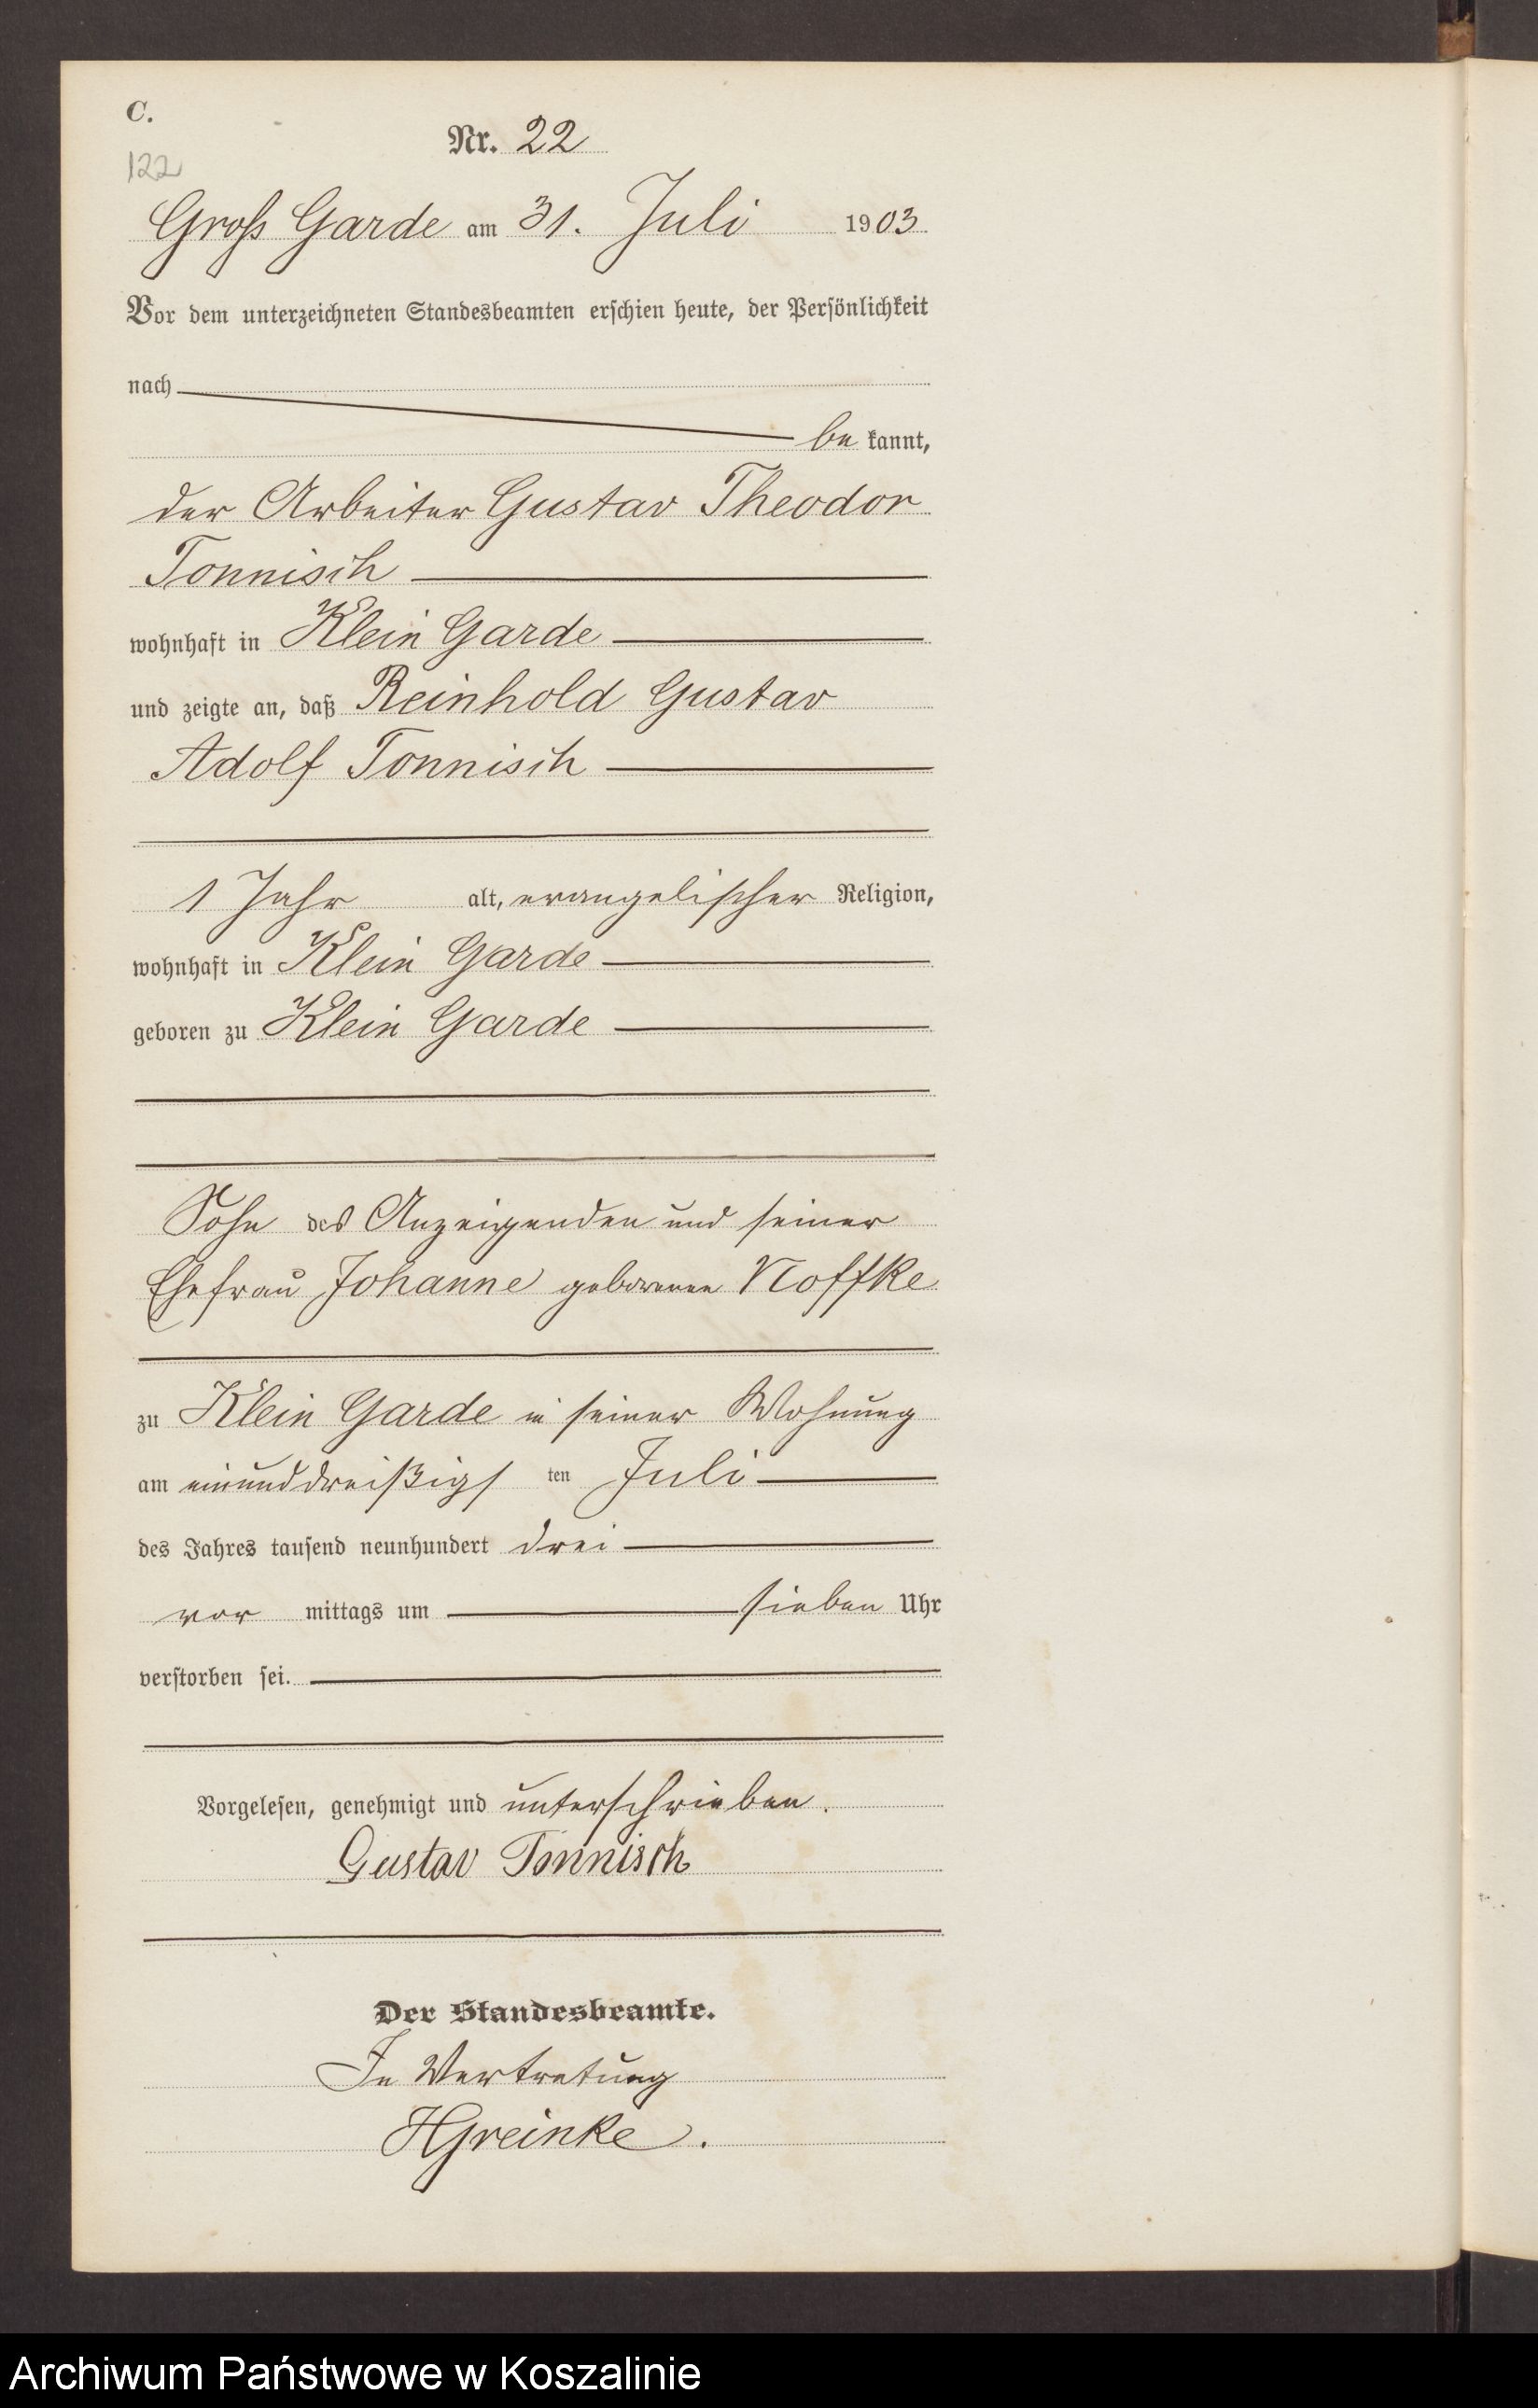 C.
Nr. 22
122
Groß Garde am 31. Juli 1903
Vor dem unterzeichneten Standesbeamten erschien heute, der Persönlichkeit
nach
be kannt,
der Arbeiter Gustav Theodor
Tonnisch
wohnhaft in Klein Garde
und zeigte an, daß Reinhold Gustav
Adolf Tonnisch
1 Jahr alt, evangelischer Religion,
wohnhaft in Klein Garde
geboren zu Klein Garde
Sohn des Anzeigenden und seiner
Ehefrau Johanne geborenen Noffke
zu Klein Garde in seiner Wohnung
am einunddreißigs ten Juli
des Jahres tausend neunhundert drei
vor mittags um sieben Uhr
verstorben sei.
Vorgelesen, genehmigt und unterschrieben.
Gustav Tonnisch
Der Standesbeamte.
In Vertretung
HGreinke.
Archiwum Państwowe w Koszalinie